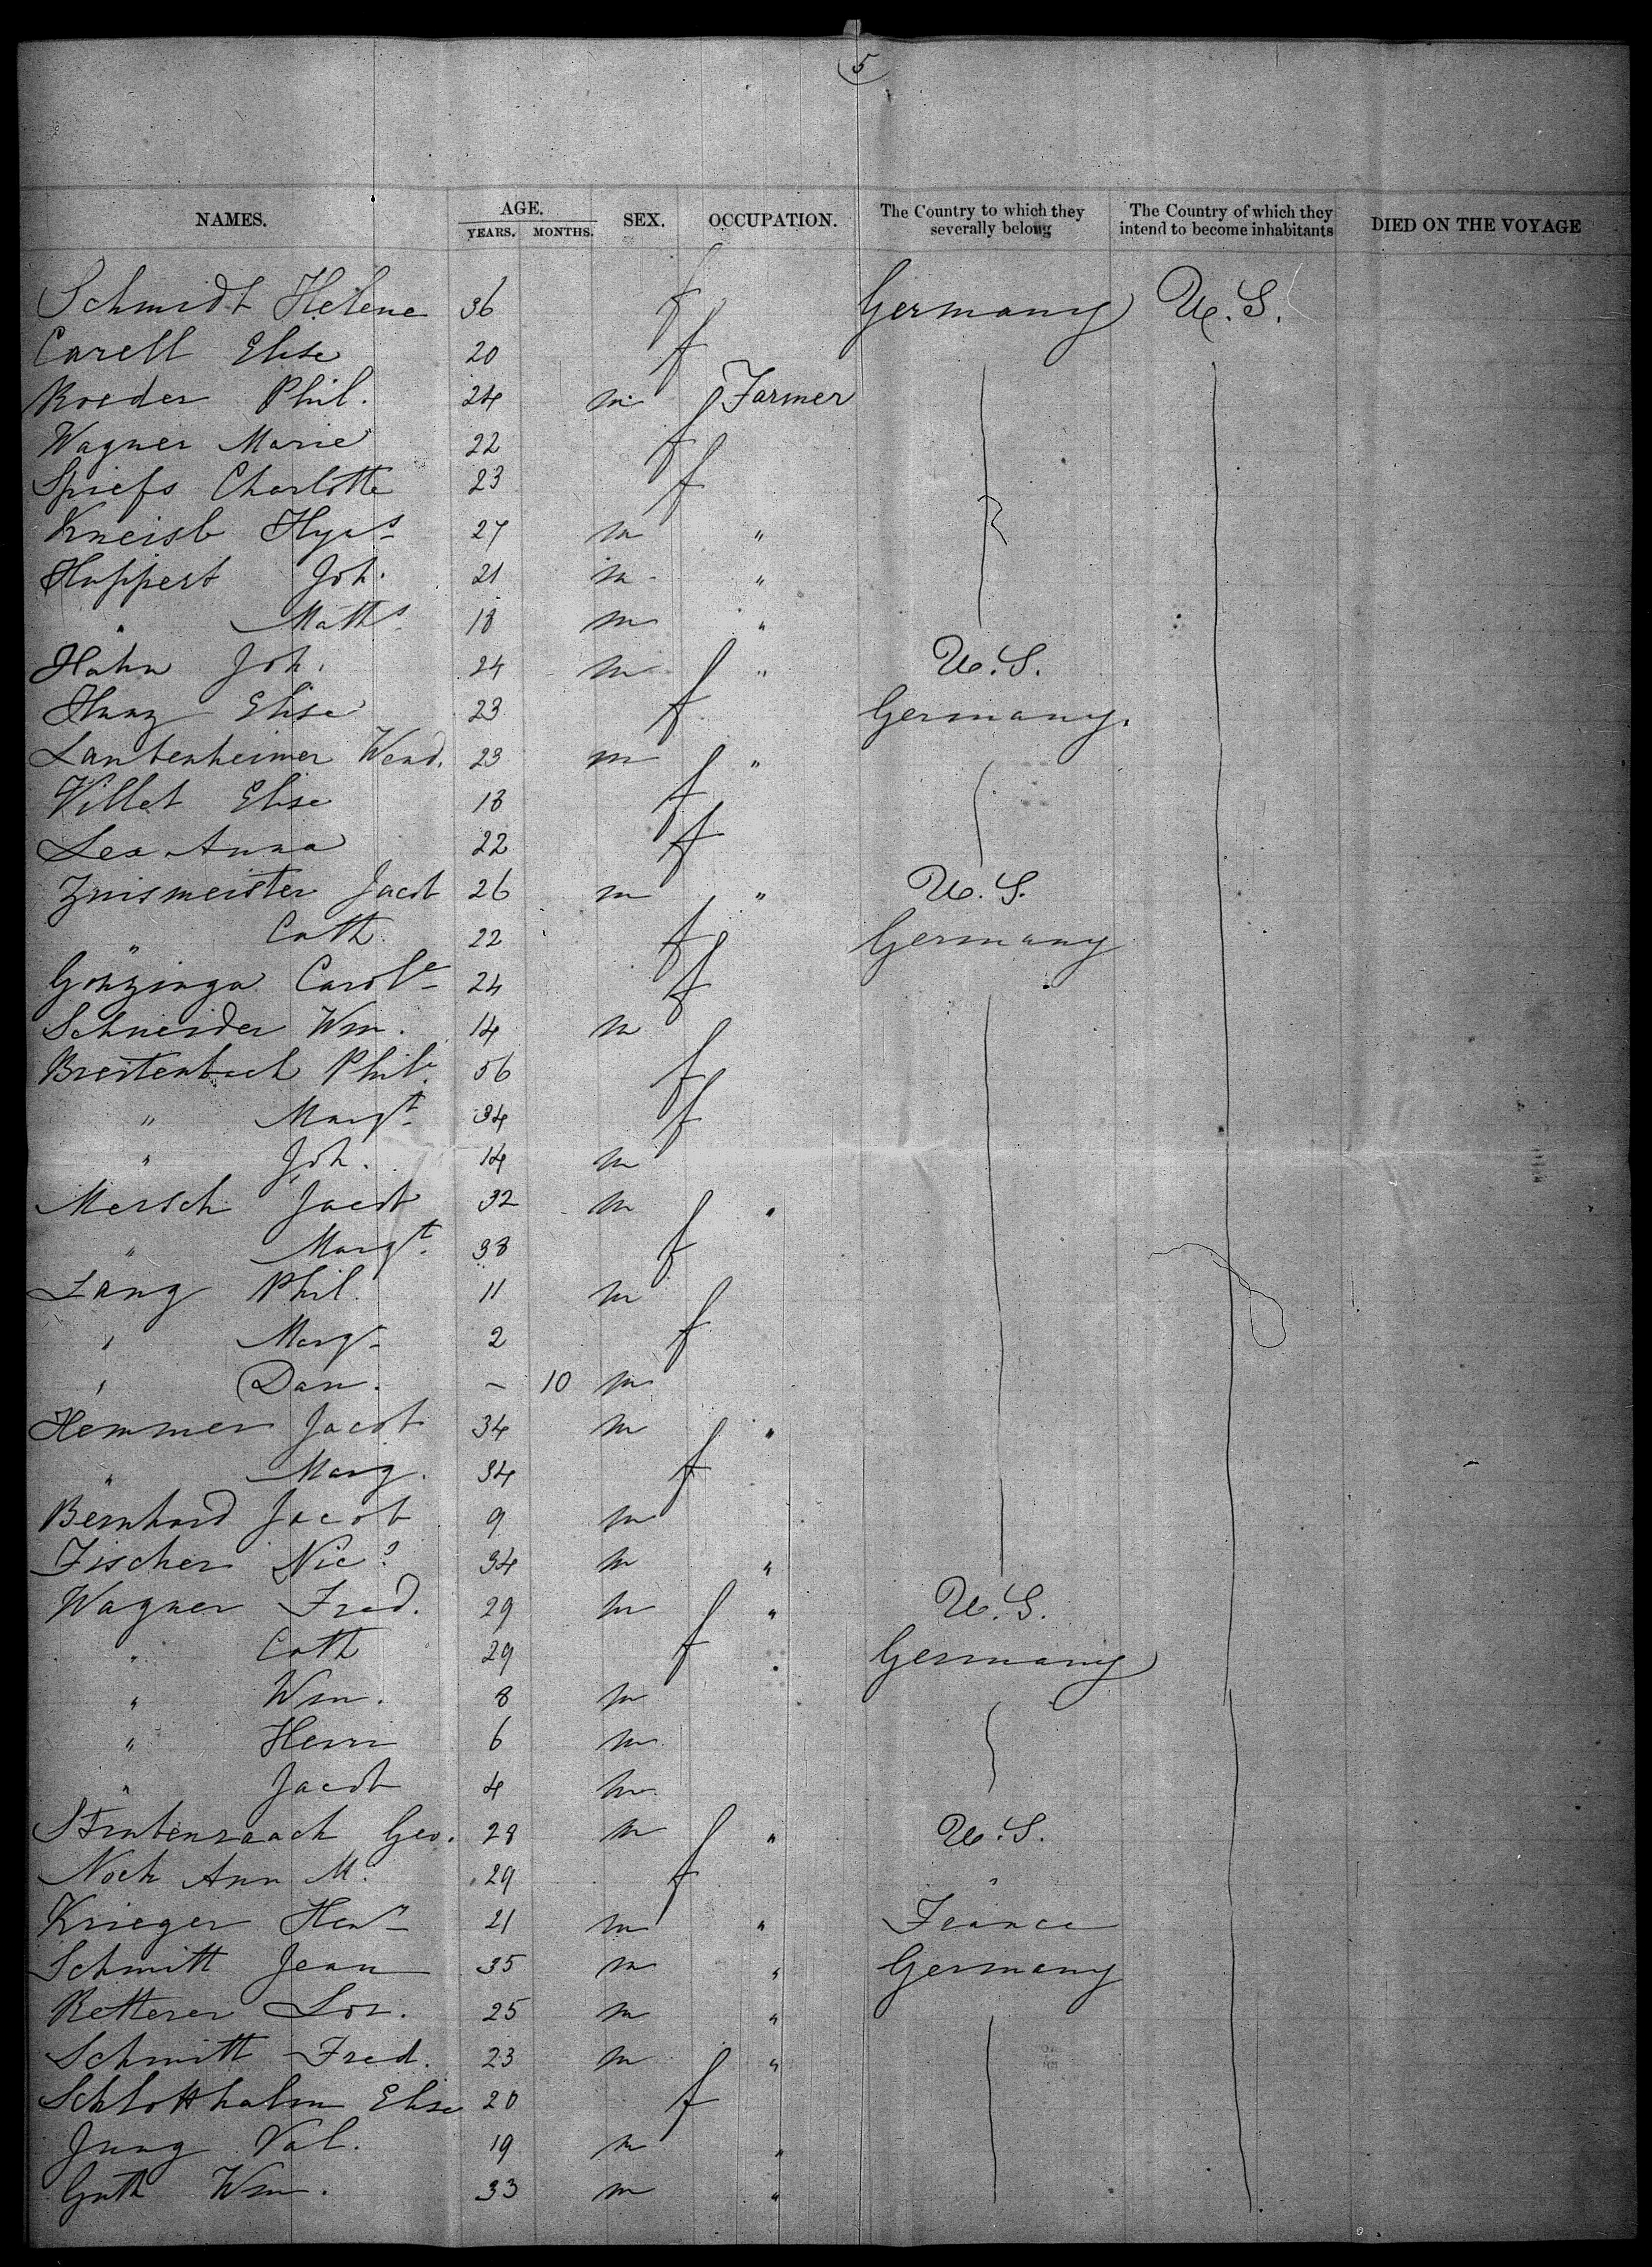 5
NAMES. AGE. YEARS. MONTHS. SEX. OCCUPATION. The Country to which they severally belong The Country of which they intend to become inhabitants DIED ON THE VOYAGE
Schmidt Helene 36 f Germany U.S.
Carell Elise 20 f
Roeder Phil. 24 m Farmer
Wagner Marie 22 f
Spiefs Charlotte 23 f
Kneisb 27 m "
Huppert Joh. 21 m "
" Maths 18 m "
Hahn Joh. 24 m " U.S.
Elise 23 f Germany.
Laubenheimer Wend. 23 m "
Villet Elise 18 f
Lex Anna 22 f
Zinsmeister Jacob 26 m " U.S.
" Cath. 22 f Germany
Carole 24 f
Schneider Wm. 14 m
Breitenbach Phile 56 f
" Margt 34 f
" Joh. 14 m
Mersch Jacob 32 m "
" Margt. 38 f
Lang Phil. 11 m
" Margt 2 f
" Dan. - 10 m
Hemmer Jacob 34 m "
" Marg. 34 f
Bernhard Jacob 9 m
Fischer Nics 34 m "
Wagner Fred. 29 m " U.S.
" Cath 29 f Germany
" Wm. 8 m
" Henri 6 m
" Jacob 4 m
Geo. 28 m " U.S.
Noch Ann M. 29 f "
Krieger Hen 21 m " France
Schmitt Jean 35 m " Germany
Retterer Lor. 25 m "
Schmitt Fred. 23 m "
Schlotthalm Elise 20 f
Jung Val. 19 m "
Guth Wm. 33 m "